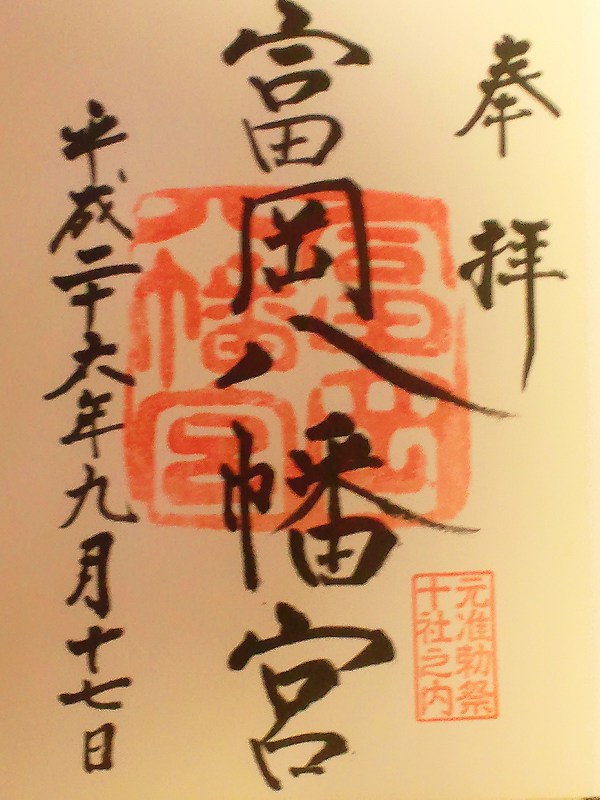 奉拝
富岡八幡宮
平成二十六年九月十七日
富岡
八幡宮
元准勅祭
十社之内